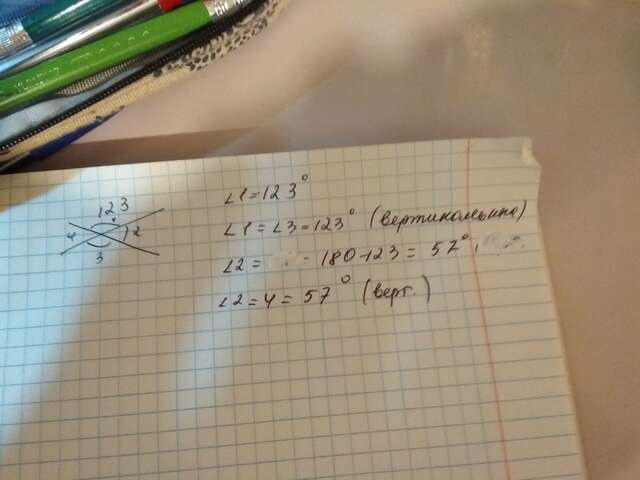 123
4 2
3
∠1=123°
∠1=∠3=123° (вертикальные)
∠2= 180-123= 57°
∠2=4=57° (верт.)